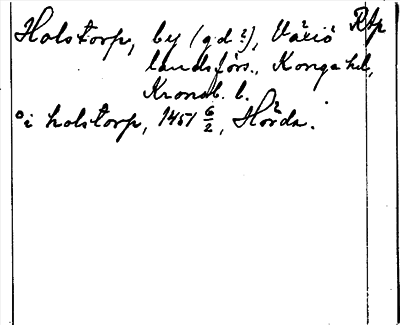 Holstorp, by (gd?), Växiö Rtp
landsförs., Konga hd,
Kronob. l.
°i holstorp, 1451 6/2, Hörda.